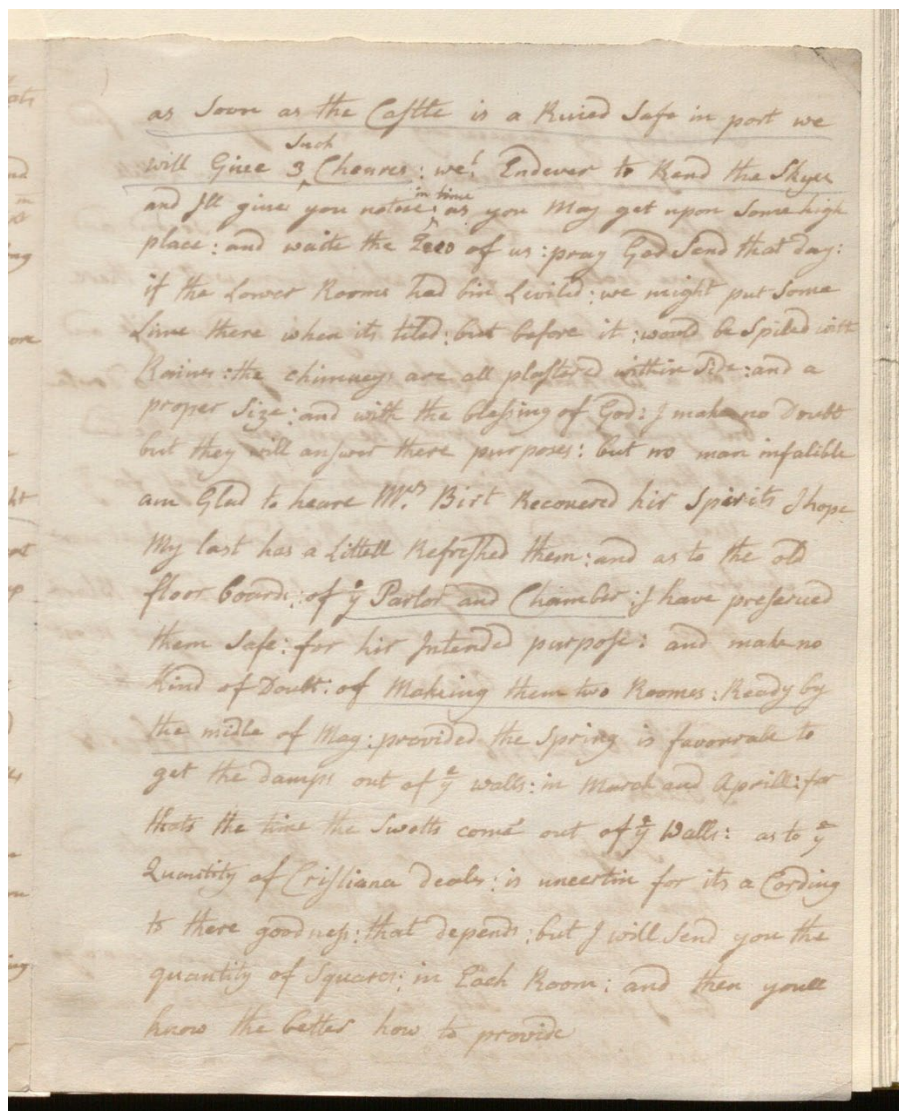 as Soon as the Castle is a Ruied Safe in port we
will Give 3 Such Cheures: wel Endever to Rend the Skyes
and Ill give you notise in time: as you May get upon Some high
place: and waite the of us: pray God Send that day:
if the Lower Rooms had bin Liviled: we might put Some
Lime there when its tiled: but before it: would be Spiled with
Raines: the chimneys are all plastered within Side: and a
proper Size: and with the blessing of God: I make no Doubt
but they will answer there purposes: but no man infalible
am Glad to heare Mrs. Birt Recovered his Spirits I hope
My last has a Littell Refreshed them: and as to the old
floor boards: of ye Parlor and Chamber: I have preserved
them Safe: for his Intended purpose: and make no
Kind of Doubt: of Making them two Roomes: Ready by
the midle of May: provided the Spring is favorrable to
get the damps out of ye walls: in March and Aprill: for
thats the time the Swetts come out of ye Walls: as to ye
Quantity of Cristiana deales: is uncertin for its a Cording
to there goodness: that depends: but I will Send you the
quantity of Squares: in Each Room: and then youll
know the better how to provide